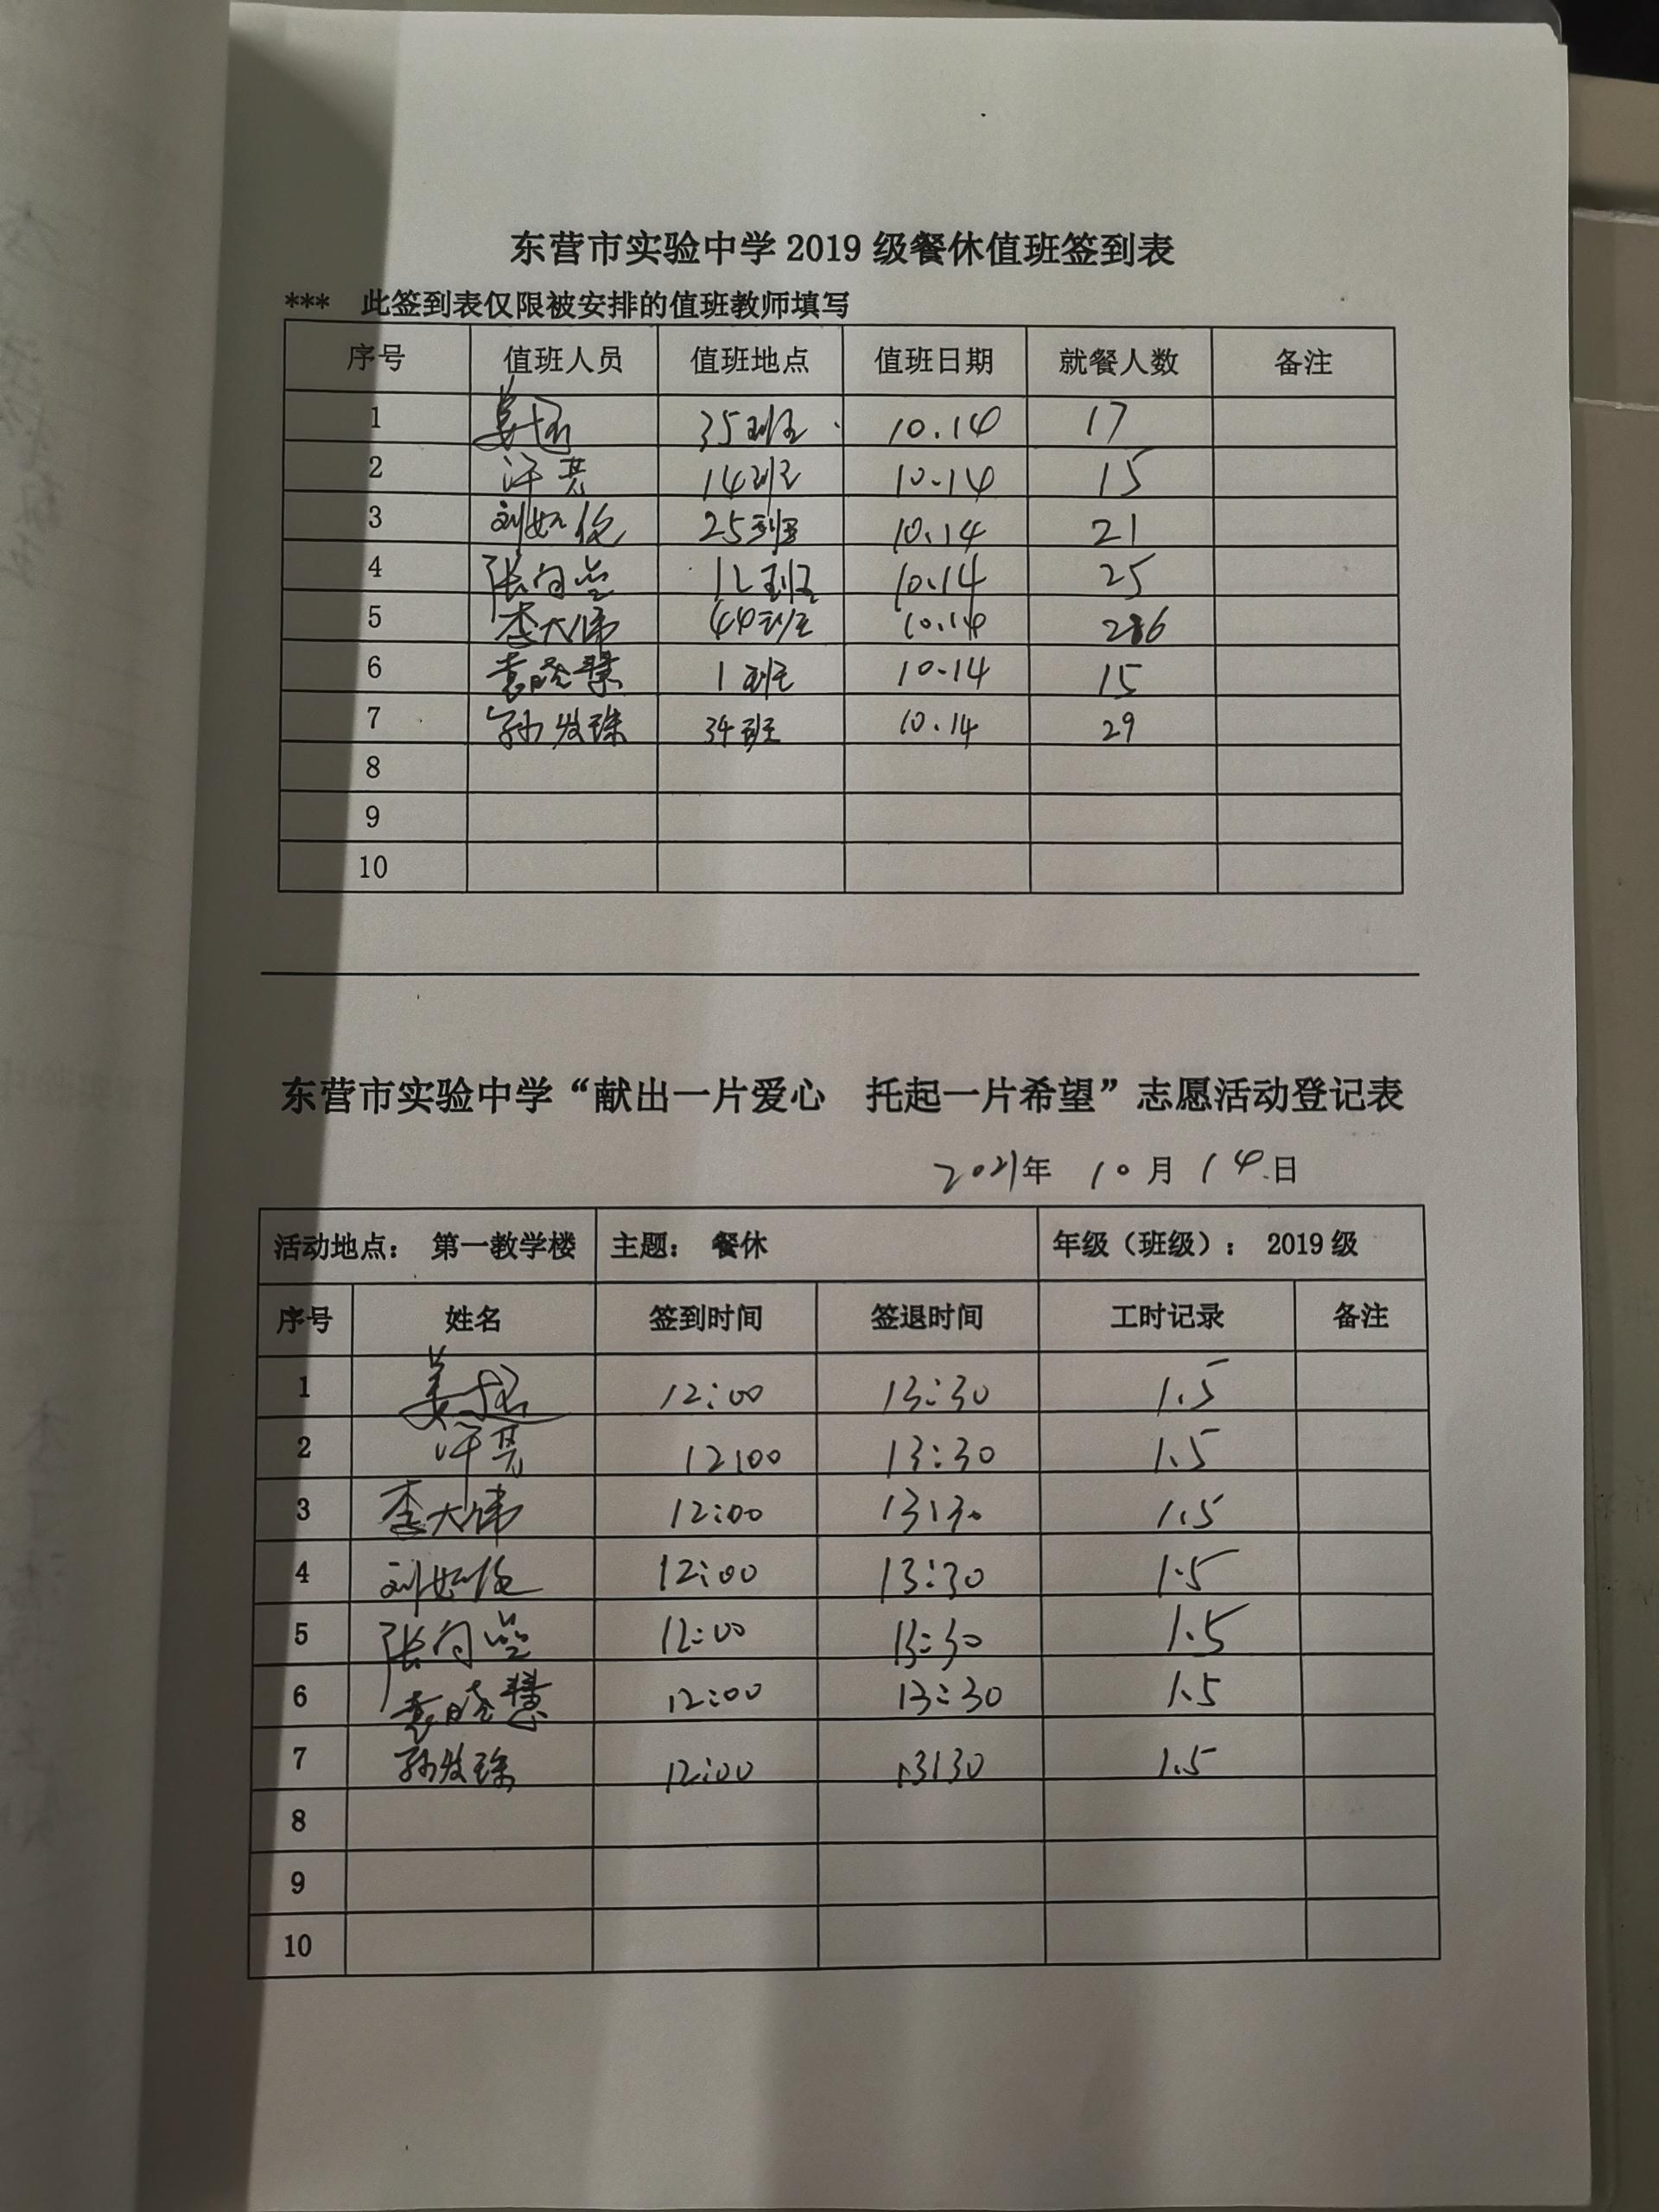 东营市实验中学 2019 级餐休值班签到表
*** 此签到表仅限被安排的值班教师填写
序号 值班人员 值班地点 值班日期 就餐人数 备注
1 35班 10.14 17
2 许亮 14班 10.14 15
3 刘如俊 25班 10.14 21
4 12班 10.14 25
5 李大伟 44班 10.14
6 袁晓慧 1班 10.14 15
7 孙发珠 34班 10.14 29
8
9
10
东营市实验中学“献出一片爱心 托起一片希望”志愿活动登记表
2021年 10月 14日
活动地点： 第一教学楼 主题： 餐休 年级（班级）： 2019 级
序号 姓名 签到时间 签退时间 工时记录 备注
1 12:00 13:30 1.5
2 许亮 12:00 13:30 1.5
3 李大伟 12:00 13:30 1.5
4 刘如俊 12:00 13:30 1.5
5 12:00 13:30 1.5
6 袁晓慧 12:00 13:30 1.5
7 孙发珠 12:00 13:30 1.5
8
9
10